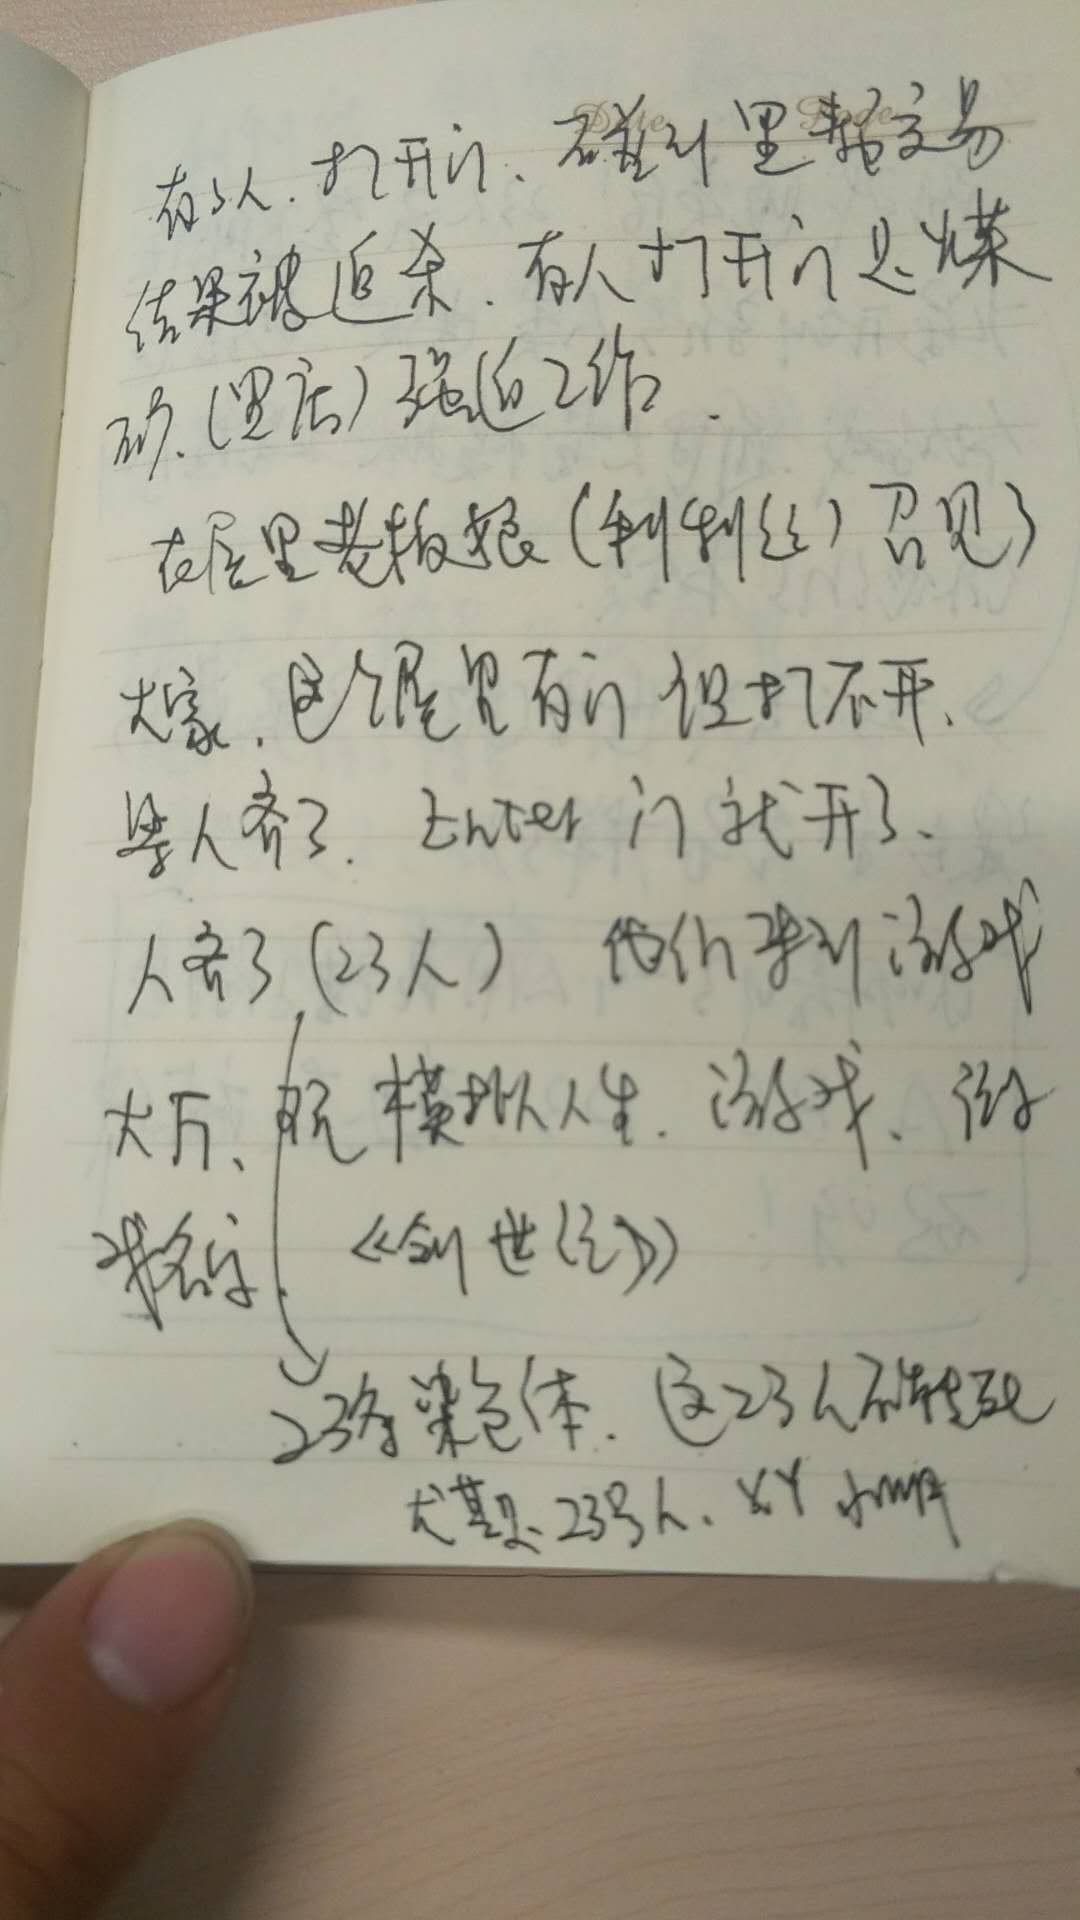 有的人.打开门、碰到黑帮交易
结果被追杀.有人打开门是煤
矿.(黑店)强迫工作.
在屋里老板娘(利利丝)召见了
大家.这个屋里有门但打不开.
等人齐了.Enter门就开了.
人齐了(23人) 他们来到游戏
大厅、玩模拟人生.游戏、游
戏名字.《创世纪》
23条染色体.这23人不能死
尤其是23号人.XY